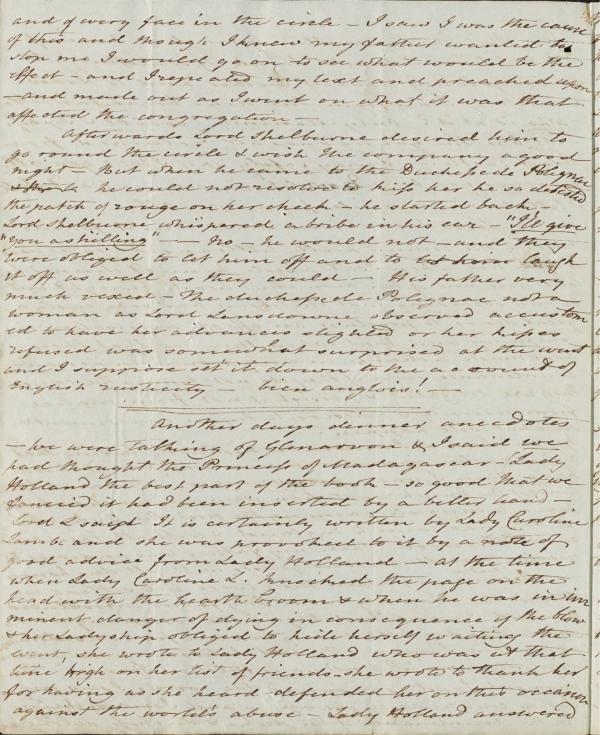 and of every face in the circle – I saw I was the cause
of this and though I knew my father wanted to
stop me I would go on to see what would be the
effect – and I repeated my text and preached upon
– and made out as I went on what it was that
affected the congregation –
Afterwards Lord Shelburne desired him to
go round the circle & wish the company a good
night – But when he came to the Duchesse de Polignac
he could not resolve to kiss her he so detested
the patch of rouge on her cheek – he started back –
Lord Shelburne whispered a bribe in his ear – "I'll give
"you a shilling" – – no – he would not – and they
were obliged to let him off and to laugh
it off as well as they could – His father very
much vexed – The duchesse de Polignac not a
woman as Lord Lansdowne observed accustom
ed to have her advances slighted or her kisses
refused was somewhat surprised at the want
and I suppose set it down to the account of
English rusticity – bien anglois! –
Another days dinner anecdotes
– We were talking of Glenarvon & I said we
had thought the Princess of Madagascar – Lady
Holland the best part of the book – so good that we
fancied it had been inserted by a better hand –
Lord L said It is certainly written by Lady Caroline
Lamb and she was provoked to it by a note of
good advice from Lady Holland – at the time
when Lady Caroline L. knocked the page on the
head with the hearth broom & when he was in im
minent danger of dying in consequence of the blow
& her Ladyship obliged to hide herself waiting the
event, she wrote to Lady Holland who was at that
time high on her list of friends – she wrote to thank her
for having as she heard defended her on this occasion
against the world's abuse – Lady Holland answered